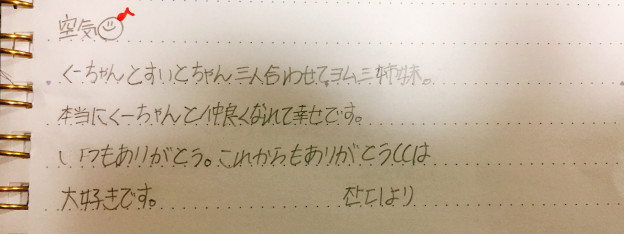 空気
くーちゃんとすいとちゃん三人合わせてヨム三姉妹。
本当にくーちゃんと仲良くなれて幸せです。
いつもありがとう。これからもありがとうCCは
大好きです。 より